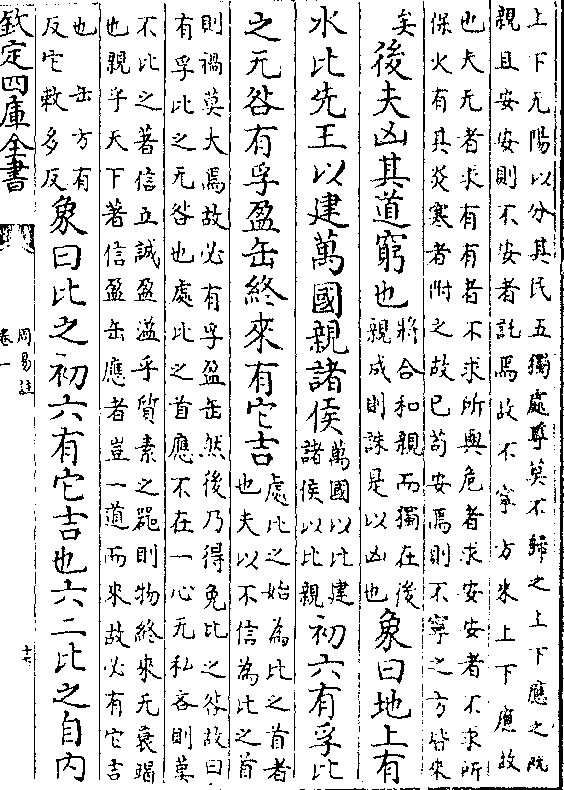 上下无陽以分其民五獨處尊莫不歸之上下應之既
親且安安則不安者託焉故不寧方來上下應故
也夫无者求有有者不求所與危者求安安者不求所
保火有其炎寒者附之故已苟安焉則不寧之方皆來
矣後夫凶其道窮也將合和親而獨在後親成則誅是以凶也象曰地上有
水比先王以建萬國親諸侯萬國以比建諸侯以比親初六有孚比
之无咎有孚盈缶終來有它吉處比之始為比之首者也夫以不信為比之首
則禍莫大焉故必有孚盈缶然後乃得免比之咎故曰
有孚比之无咎也處比之首應不在一心无私吝則莫
不比之著信立誠盈溢乎質素之器則物終來无衰竭
也親乎天下著信盈缶應者豈一道而來故必有它吉
也 缶方有反它敕多反象曰比之初六有它吉也六二比之自内
欽定四庫全書
周易註
卷一